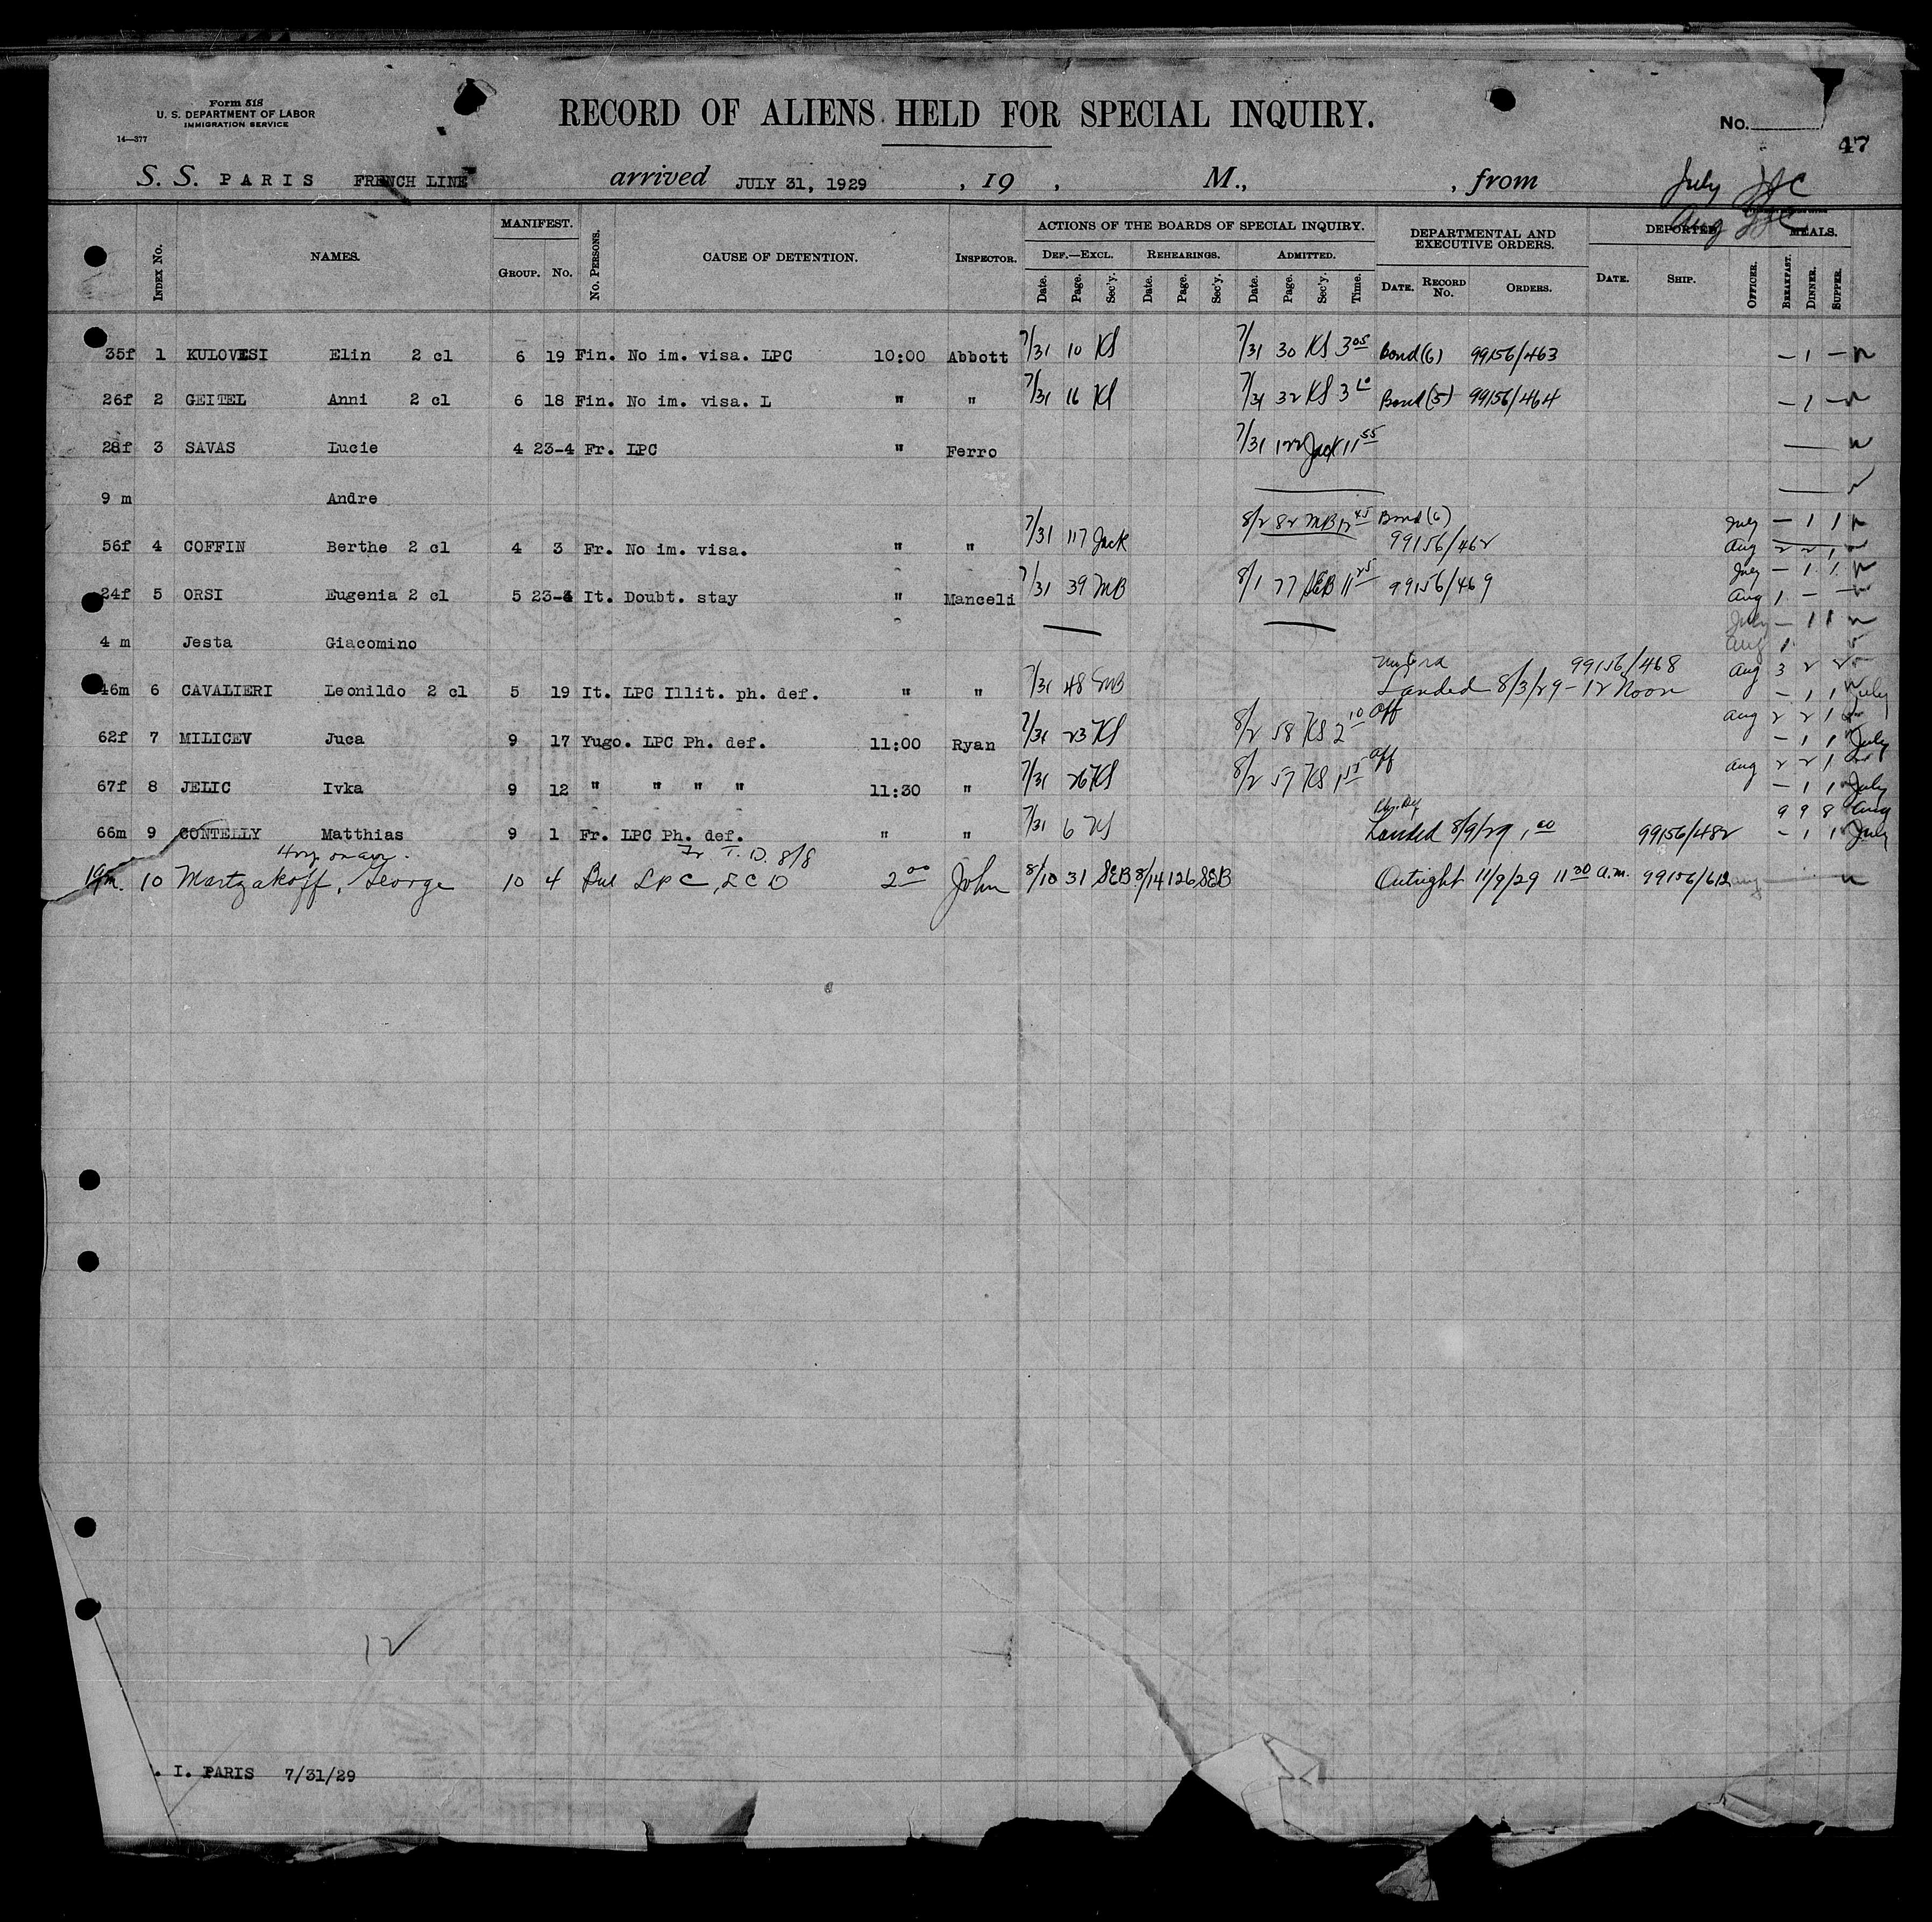 Form 518
U. S. DEPARTMENT OF LABOR
IMMIGRATION SERVICE
14—377
RECORD OF ALIENS HELD FOR SPECIAL INQUIRY.
No.
47
S. S. PARIS FRENCH LINE arrived JULY 31, 1929 , 19 , M., , from
July
Aug
INDEX No. NAMES. MANIFEST. GROUP. No. No. PERSONS. CAUSE OF DETENTION. INSPECTOR. ACTIONS OF THE BOARDS OF SPECIAL INQUIRY. DEF.—EXCL. Date. Page. Sec'y. REHEARINGS. Date. Page. Sec'y. ADMITTED. Date. Page. Sec'y. Time. DEPARTMENTAL AND EXECUTIVE ORDERS. DATE. RECORD No. ORDERS. DEPORTED. DATE. SHIP. OFFICER. MEALS. BREAKFAST. DINNER. SUPPER.
35f 1 KULOVESI Elin 2 cl 6 19 Fin. No im. visa. LPC 10:00 Abbott 7/31 10 KS 7/31 30 KS 3 05 Bond (6) 99156/463 — 1 —
26f 2 GEITEL Anni 2 cl 6 18 Fin. No im. visa. L " " 7/31 16 KS 7/31 32 KS 3 10 Bond (5) 99156/464 — 1 —
28f 3 SAVAS Lucie 4 23-4 Fr. LPC " Ferro 7/31 122 Jack 11 55
9 m Andre
56f 4 COFFIN Berthe 2 cl 4 3 Fr. No im. visa. " " 7/31 117 Jack 8/2 82 MB 12 45 Bond (6) July — 1 1
99156/462 Aug 2 2 1
24f 5 ORSI Eugenia 2 cl 5 23-4 It. Doubt. stay " Manceli 7/31 39 MB 8/1 77 SEB 11 25 99156/469 July — 1 1
Aug 1 — —
4 m Jesta Giacomino July — 1 1
Aug 1
46m 6 CAVALIERI Leonildo 2 cl 5 19 It. LPC Illit. ph. def. " " 7/31 48 MB 99156/468 Aug 3 2 2
Landed 8/3/29 — 12 Noon — 1 1 July
62f 7 MILICEV Juca 9 17 Yugo. LPC Ph. def. 11:00 Ryan 7/31 23 KS 8/2 58 KS 2 10 Off Aug 2 2 1
— 1 1 July
67f 8 JELIC Ivka 9 12 " " " " 11:30 " 7/31 26 KS 8/2 57 KS 1 55 Off Aug 2 2 1
— 1 1 July
66m 9 CONTELLY Matthias 9 1 Fr. LPC Ph. def. " " 7/31 6 KS Landed 8/9/29 1 00 99156/482 9 9 8 Aug
— 1 1 July
T. D. 8/8
19m. 10 Martzakoff, George 10 4 Bul LPC, LCD 2 00 John 8/10 31 SEB 8/14 126 SEB Outright 11/9/29 11 30 a.m. 99156/612 Aug
12
. I. PARIS 7/31/29